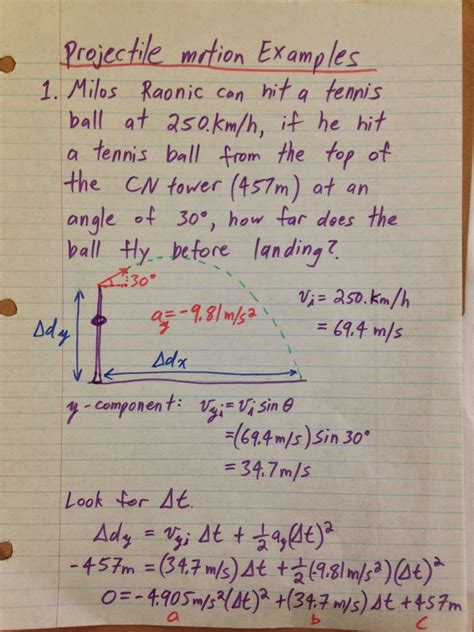 Projectile motion Examples
1. Milos Raonic can hit a tennis
ball at 250.km/h, if he hit
a tennis ball from the top of
the CN tower (457m) at an
angle of 30°, how far does the
ball fly before landing?
30°
a_y = -9.81m/s²
v_i = 250.km/h
= 69.4 m/s
Δd_y
Δd_x
y-component: v_yi = v_i sin θ
=(69.4m/s) Sin 30°
= 34.7m/s
Look for Δt.
Δd_y = v_yi Δt + ½a_y(Δt)²
-457m = (34.7m/s)Δt + ½(-9.81m/s²)(Δt)²
0 = -4.905m/s²(Δt)² + (34.7m/s)Δt + 457m
a b c